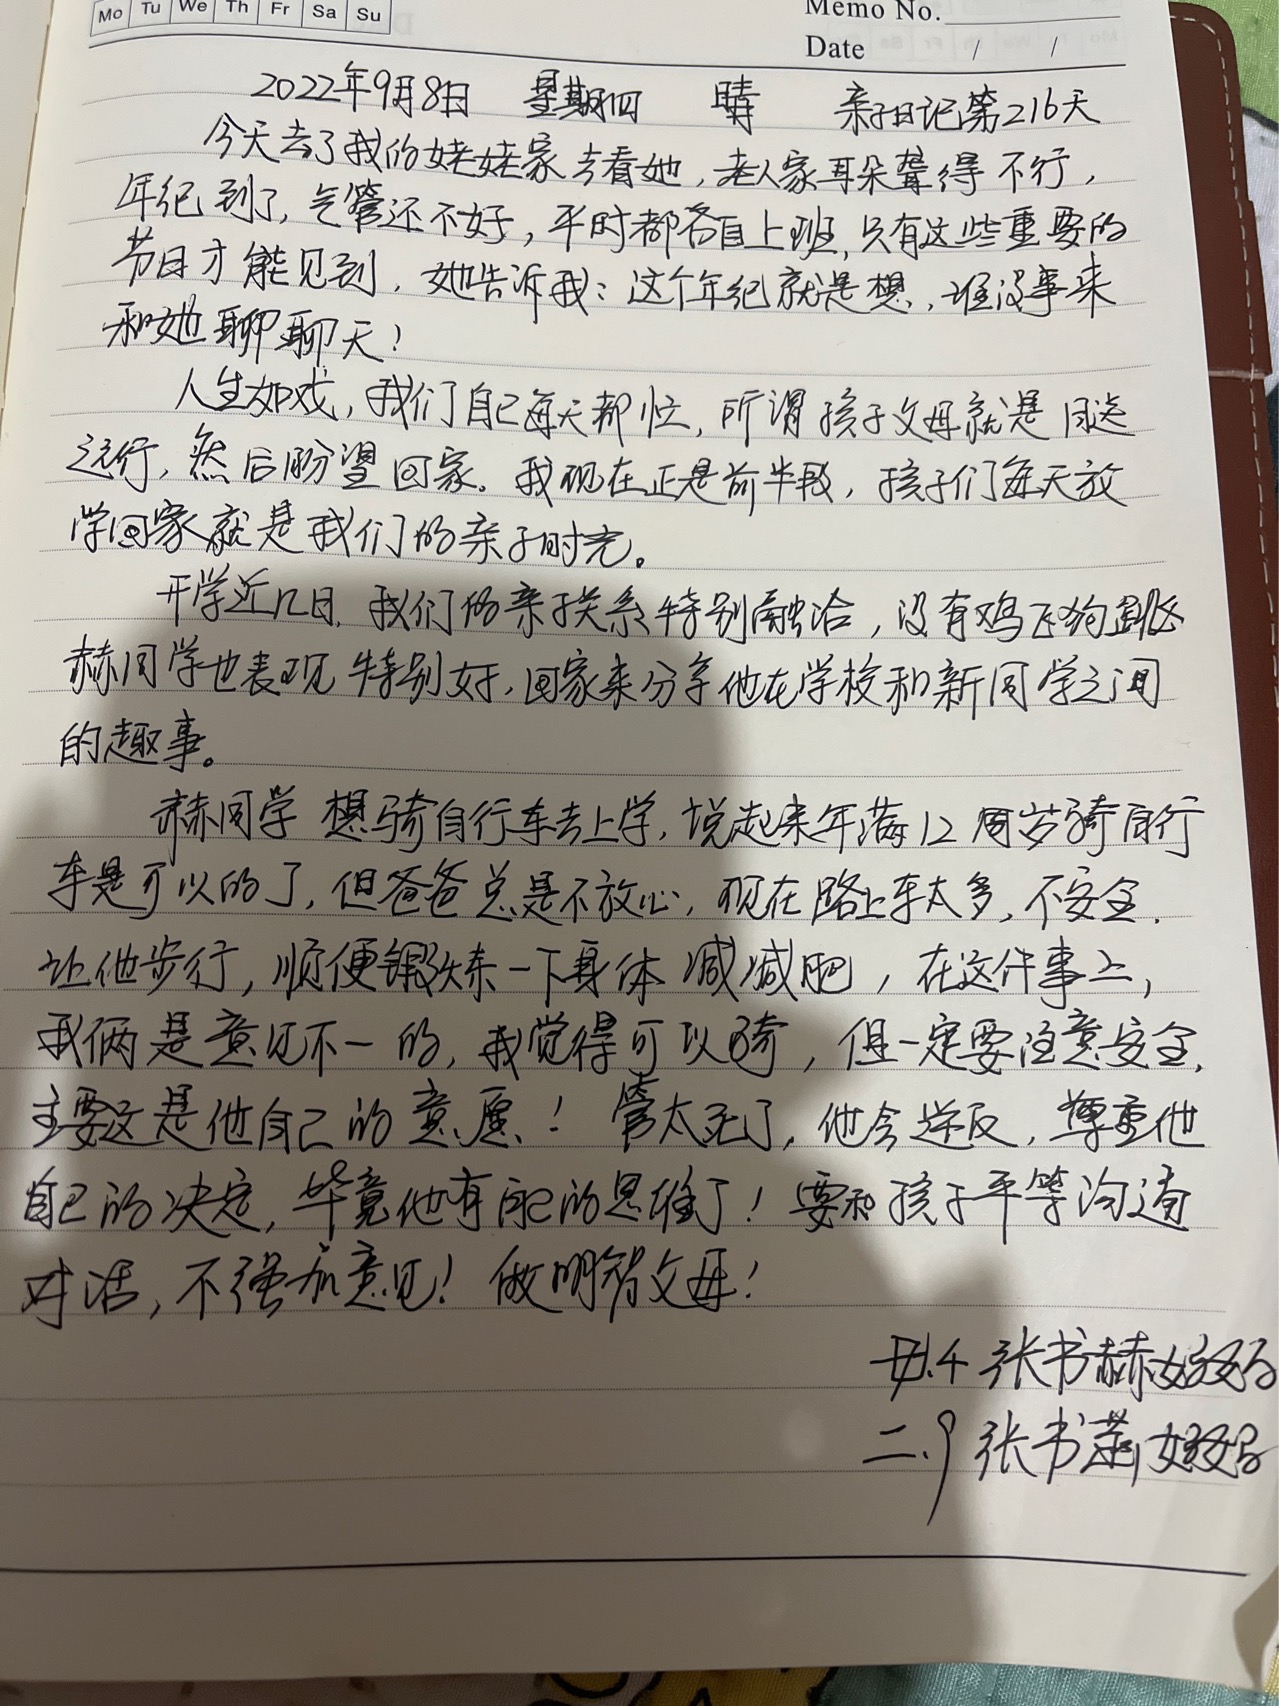 Mo Tu We Th Fr Sa Su
Memo No.
Date / /
2022年9月8日 星期四 晴 亲子日记第216天
今天去了我的姥姥家去看她，老人家耳朵聋得不行，
年纪到了，气管还不好，平时都各自上班，只有这些重要的
节日才能见到，她告诉我：这个年纪就是想，谁没事来
和她聊聊天！
人生如戏，我们自己每天都忙，所谓孩子父母就是目送
远行，然后盼望回家。我现在正是前半段，孩子们每天放
学回家就是我们的亲子时光。
开学近几日，我们的亲子关系特别融洽，没有鸡飞狗跳
赫同学也表现特别好，回家来分享他在学校和新同学之间
的趣事。
赫同学想骑自行车去上学，说起来年满12周岁骑自行
车是可以的了，但爸爸总是不放心，现在路上车太多，不安全，
让他步行，顺便锻炼一下身体减减肥，在这件事上，
我俩是意见不一的，我觉得可以骑，但一定要注意安全，
主要这是他自己的意愿！管太死了，他会逆反，尊重他
自己的决定，毕竟他有自己的思维了！要和孩子平等沟通
对话，不强加意见！做明智父母！
张书赫妈妈
二.9 张书 妈妈